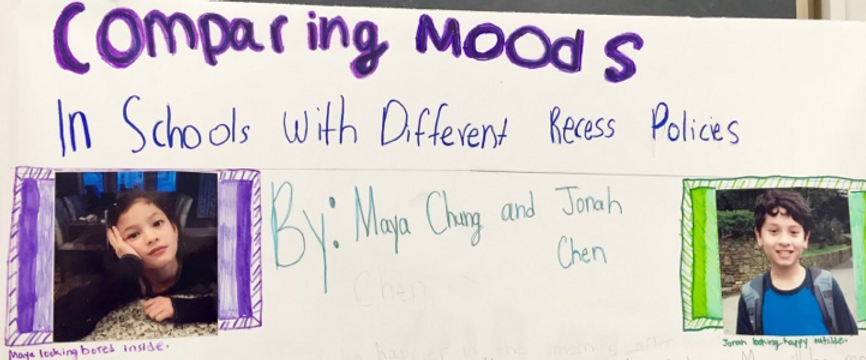 Comparing Moods
In Schools With Different Recess Policies
By: Maya Chung and Jonah
Chen
Chen
Maya looking bored inside.
Jonah looking happy outside.
happier in the morning after